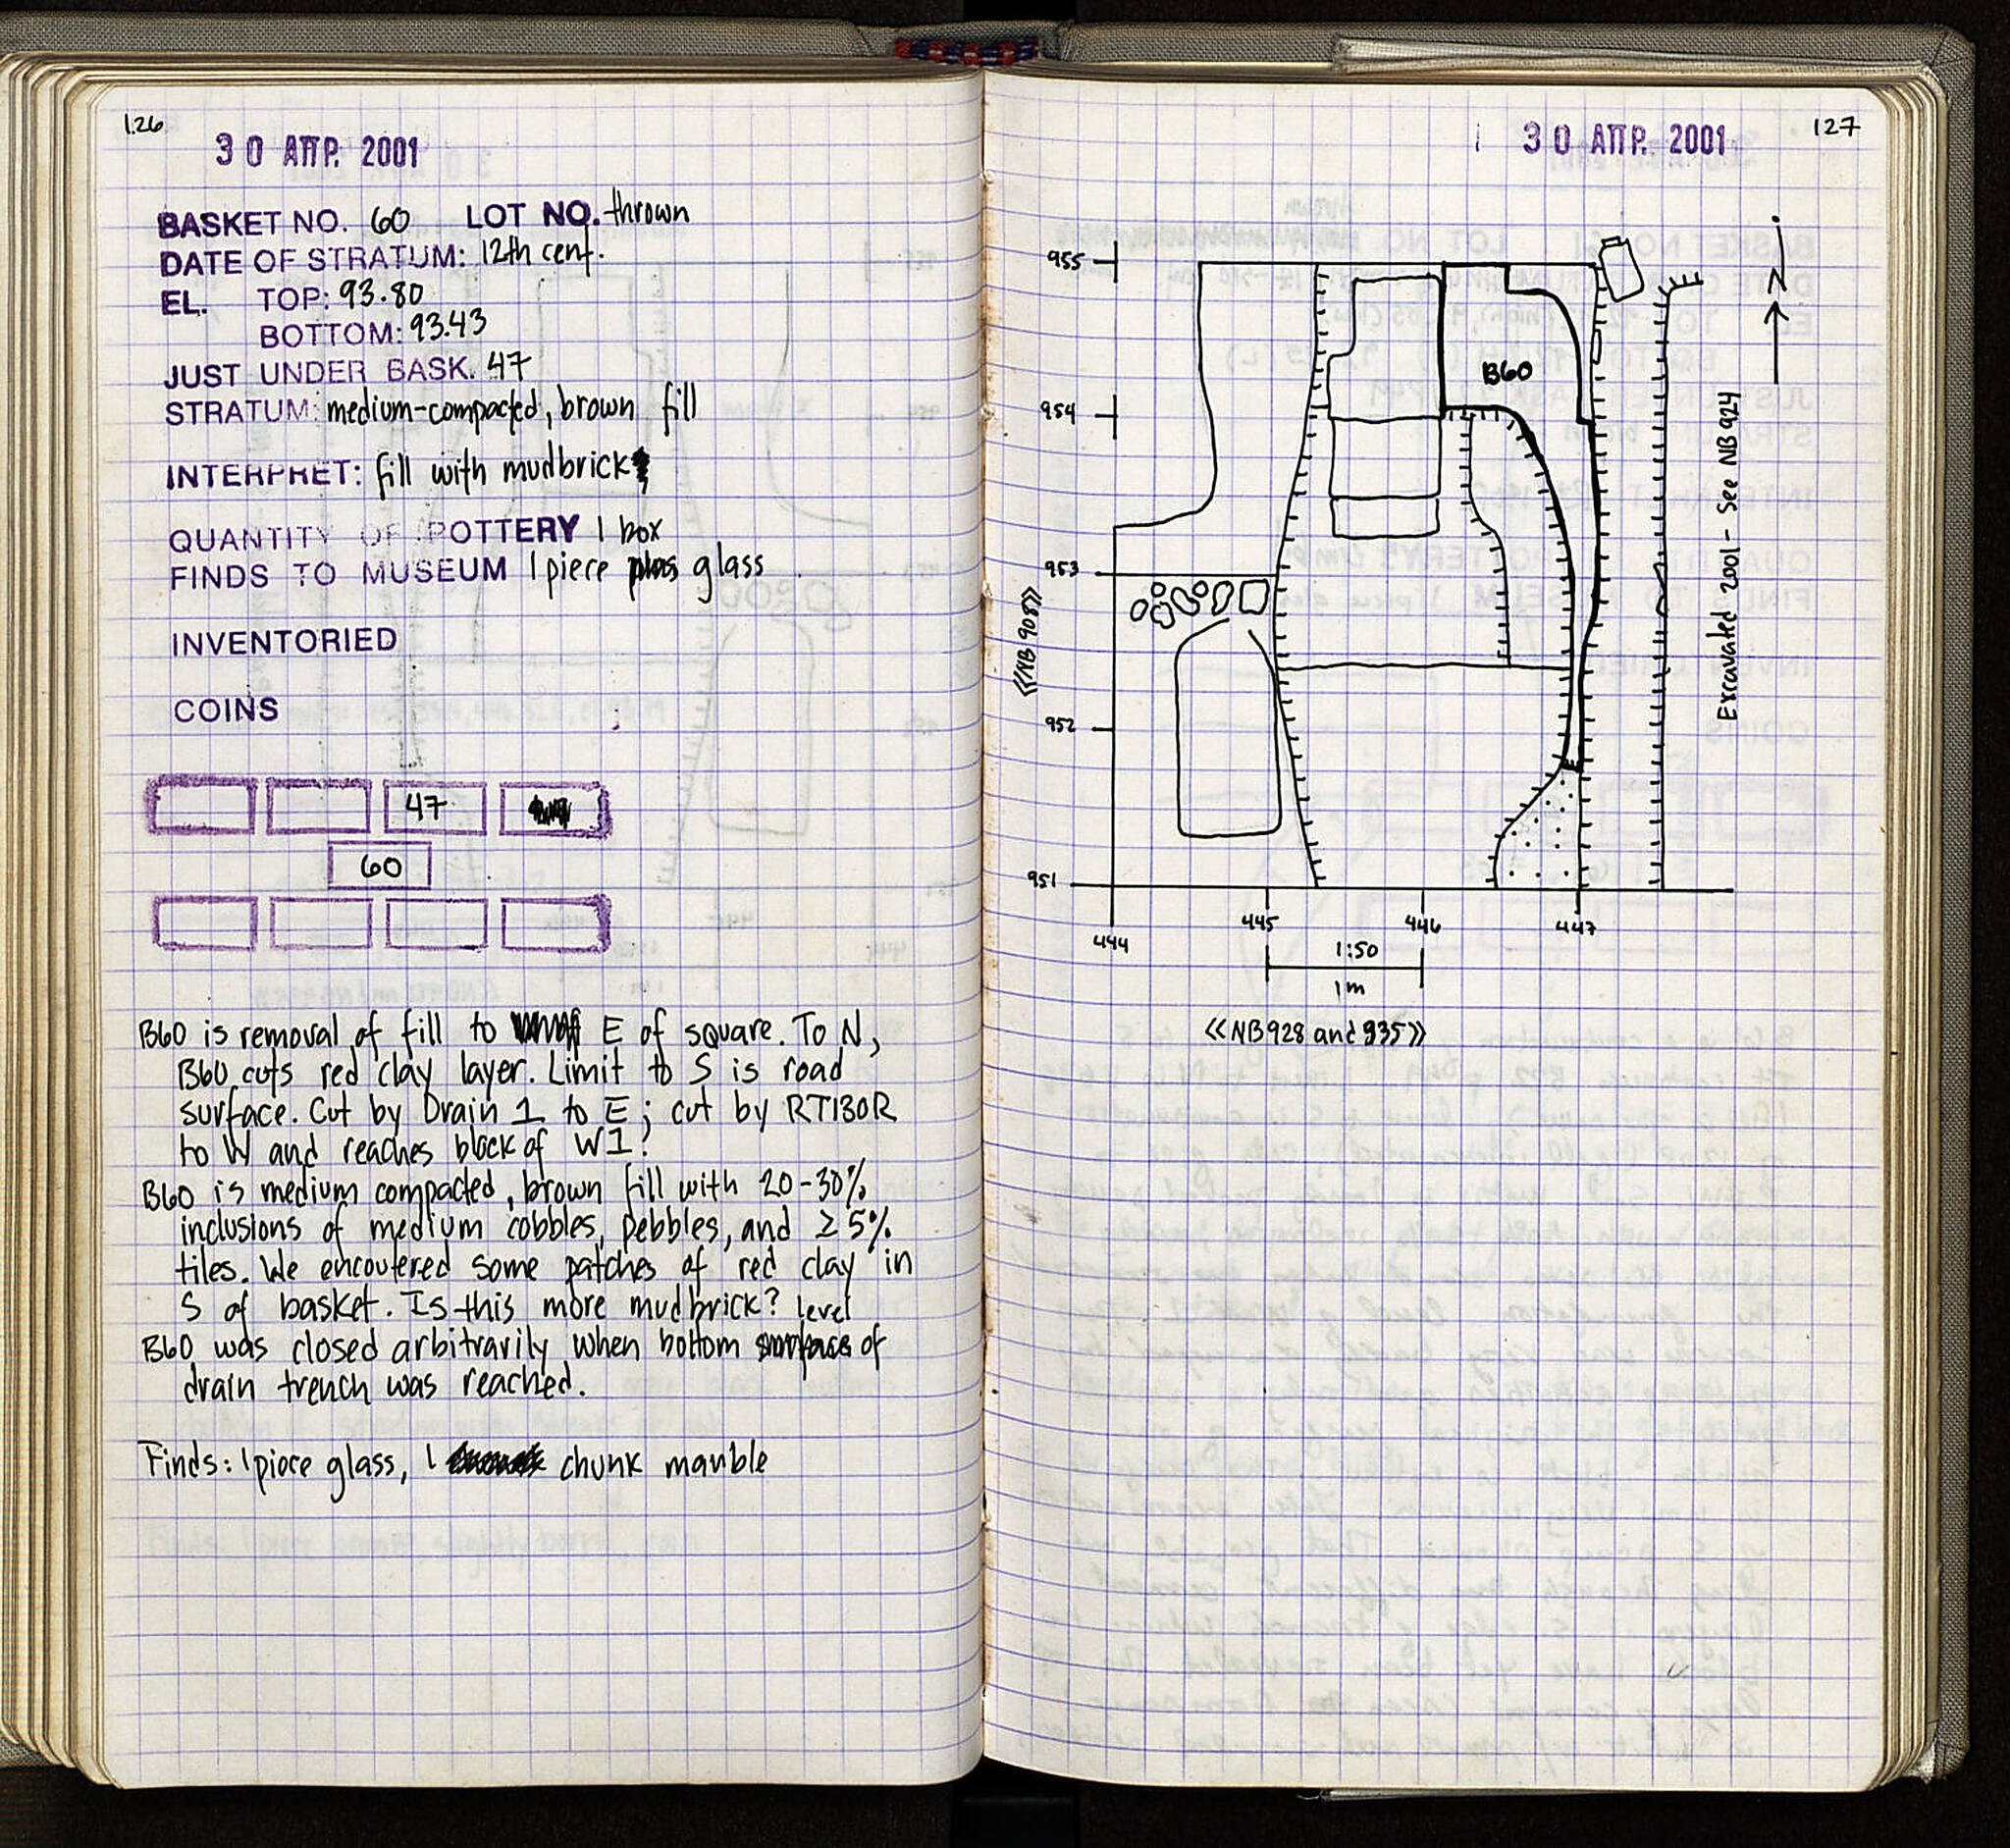 126
30 ΑΠΡ. 2001
BASKET NO. 60 LOT NO. thrown
DATE OF STRATUM: 12th cent.
EL. TOP: 93.80
BOTTOM: 93.43
JUST UNDER BASK. 47
STRATUM: medium-compacted, brown fill
INTERPRET: fill with mudbrick
QUANTITY OF POTTERY 1 box
FINDS TO MUSEUM 1 piece glass
INVENTORIED
COINS
47
60
B60 is removal of fill to E of square. To N,
B60 cuts red clay layer. Limit to S is road
surface. Cut by Drain 1 to E; cut by RT130R
to W and reaches block of W1?
B60 is medium compacted, brown fill with 20-30%
inclusions of medium cobbles, pebbles, and ≥5%
tiles. We encoutered some patches of red clay in
S of basket. Is this more mudbrick?
B60 was closed arbitrarily when bottom level of
drain trench was reached.
Finds: 1 piece glass, 1 chunk marble
127
30 ΑΠΡ. 2001
955
N
B60
954
Excavated 2001 - See NB 924
953
«NB 905»
952
951
444
445
446
447
1:50
1m
«NB 928 and 935»